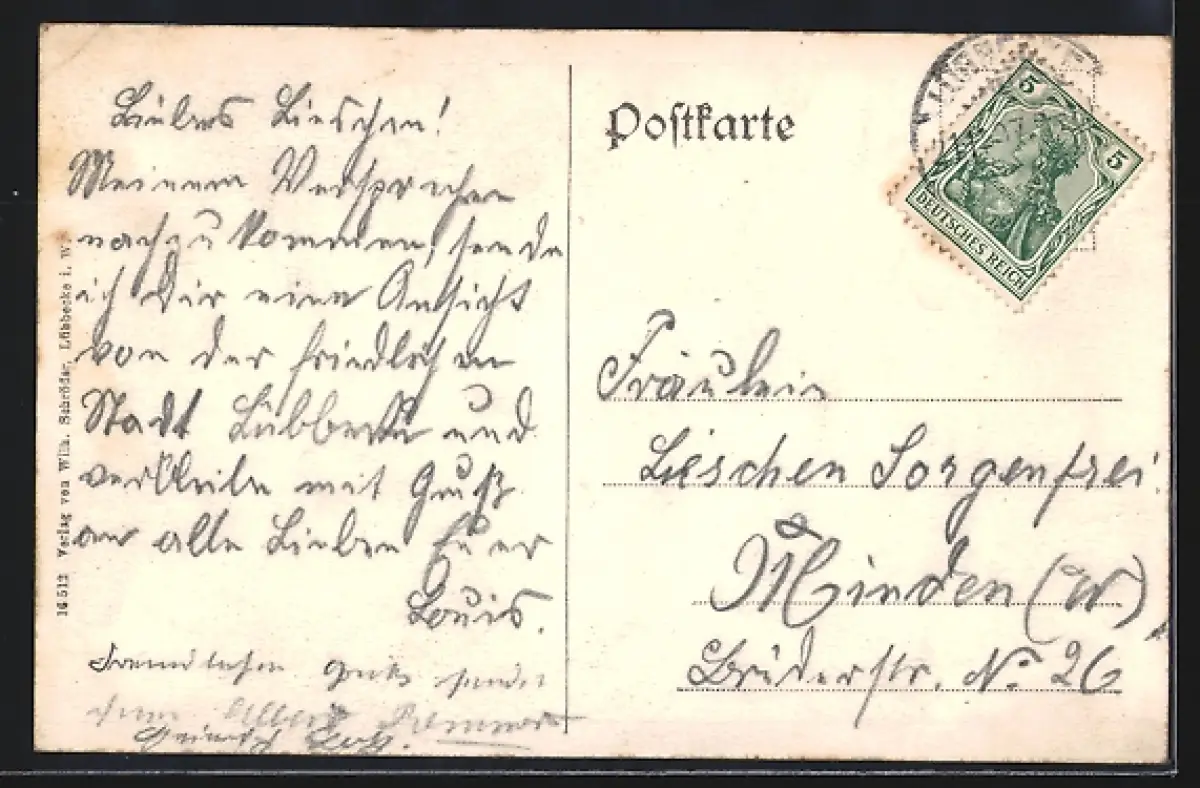 Liebes Lieschen!
Meinem Versprechen
nachzukommen, sende
ich Dir eine Ansicht
von der friedlichen
Stadt Lübbecke und
verbleibe mit Gruß
an alle Lieben Euer
Louis.
Freundlichen Gruß sendet
Albert
Heinrich
16 512 Verlag von Wilh. Schröder, Lübbecke i. W.
Postkarte
5
5
DEUTSCHES REICH
Fräulein
Lieschen Sorgenfrei
Minden (W)
Brüderstr. No. 26